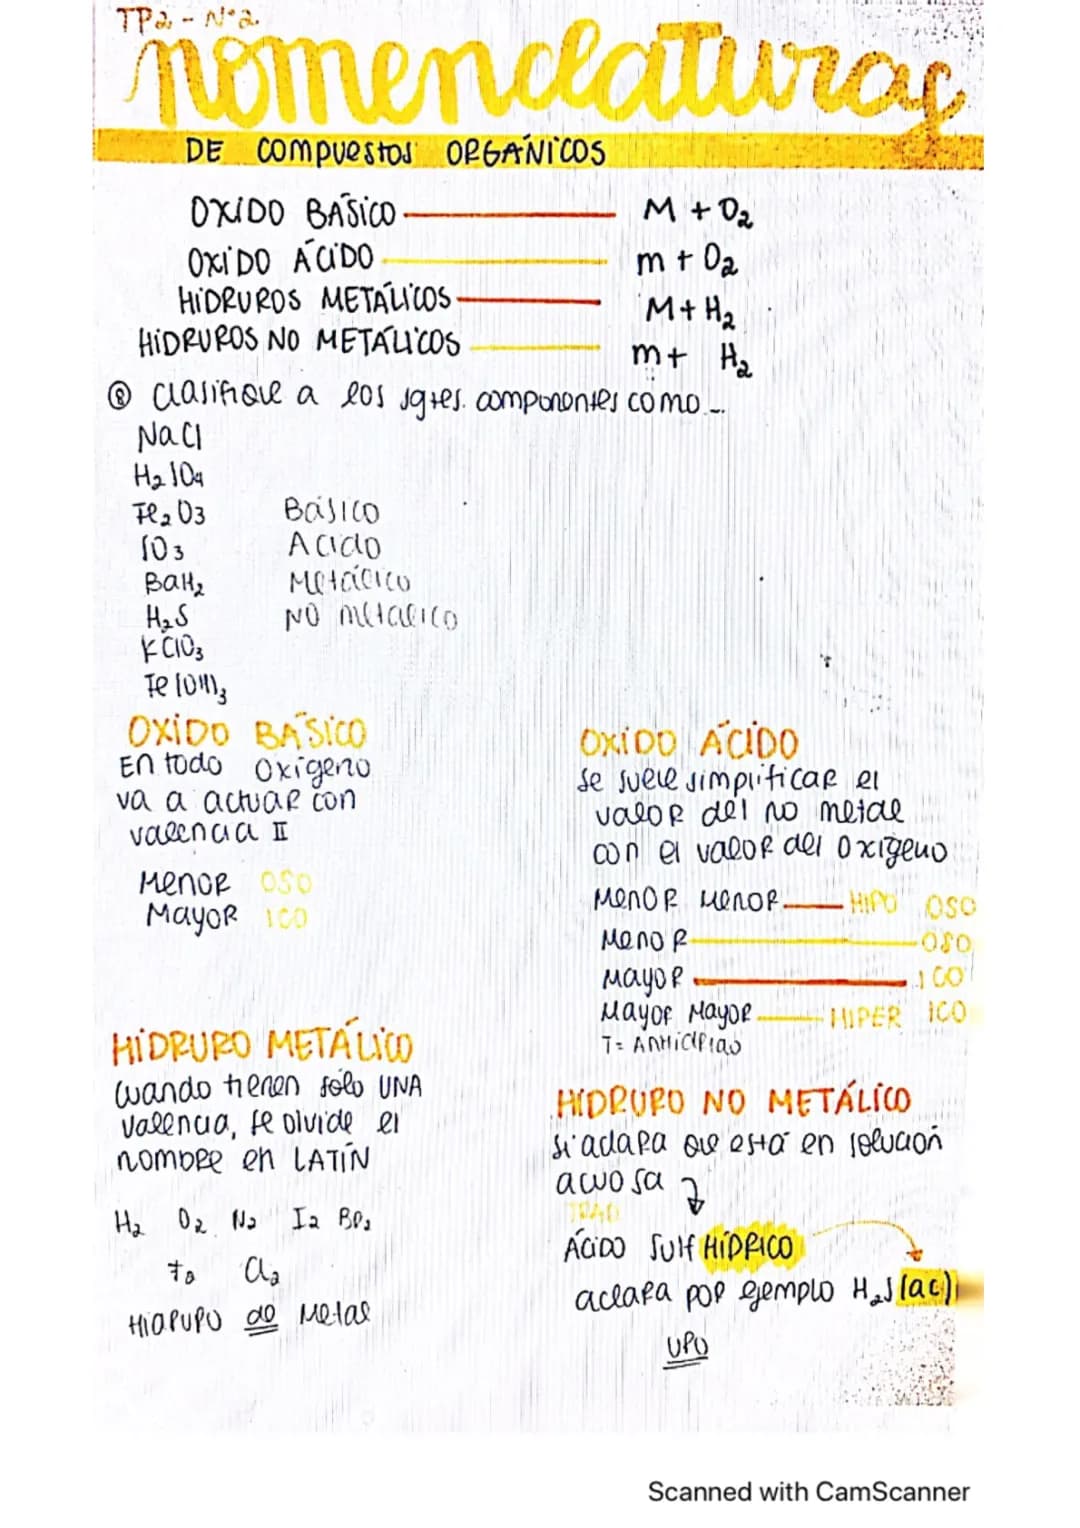 TP2 - N°2
nomenclaturas
DE compuestos ORGÁNICOS
OXIDO BÁSICO M + O2
OXIDO ÁCIDO m + O2
HIDRUROS METÁLICOS M + H2
HIDRUROS NO METÁLICOS m + H2
⑧ Clasifique a los sgtes. componontes como...
NaCl
H2 SO4
Fe2 O3 Básico
SO3 Acido
BaH2 Metálico
H2S NO metálico
KClO3
Fe (OH)3
OXIDO BÁSICO
En todo Oxígeno
va a actuar con
valencia II
Menor OSO
Mayor ICO
OXIDO ÁCIDO
se suele simplificar el
valor del no metal
con el valor del Oxígeno
Menor Menor HIPO OSO
Menor OSO
Mayor ICO
Mayor Mayor HIPER ICO
HIDRURO METÁLICO
Cuando tienen sólo UNA
valencia, se olvide el
nombre en LATÍN
H2 O2 N2 I2 Br2
F2 Cl2
Hidruro de Metal
HIDRURO NO METÁLICO
si aclara que está en solución
acuosa
TRAD
ÁCIDO Sulf HÍDRICO
aclara por ejemplo H2S (ac)
URO
Scanned with CamScanner